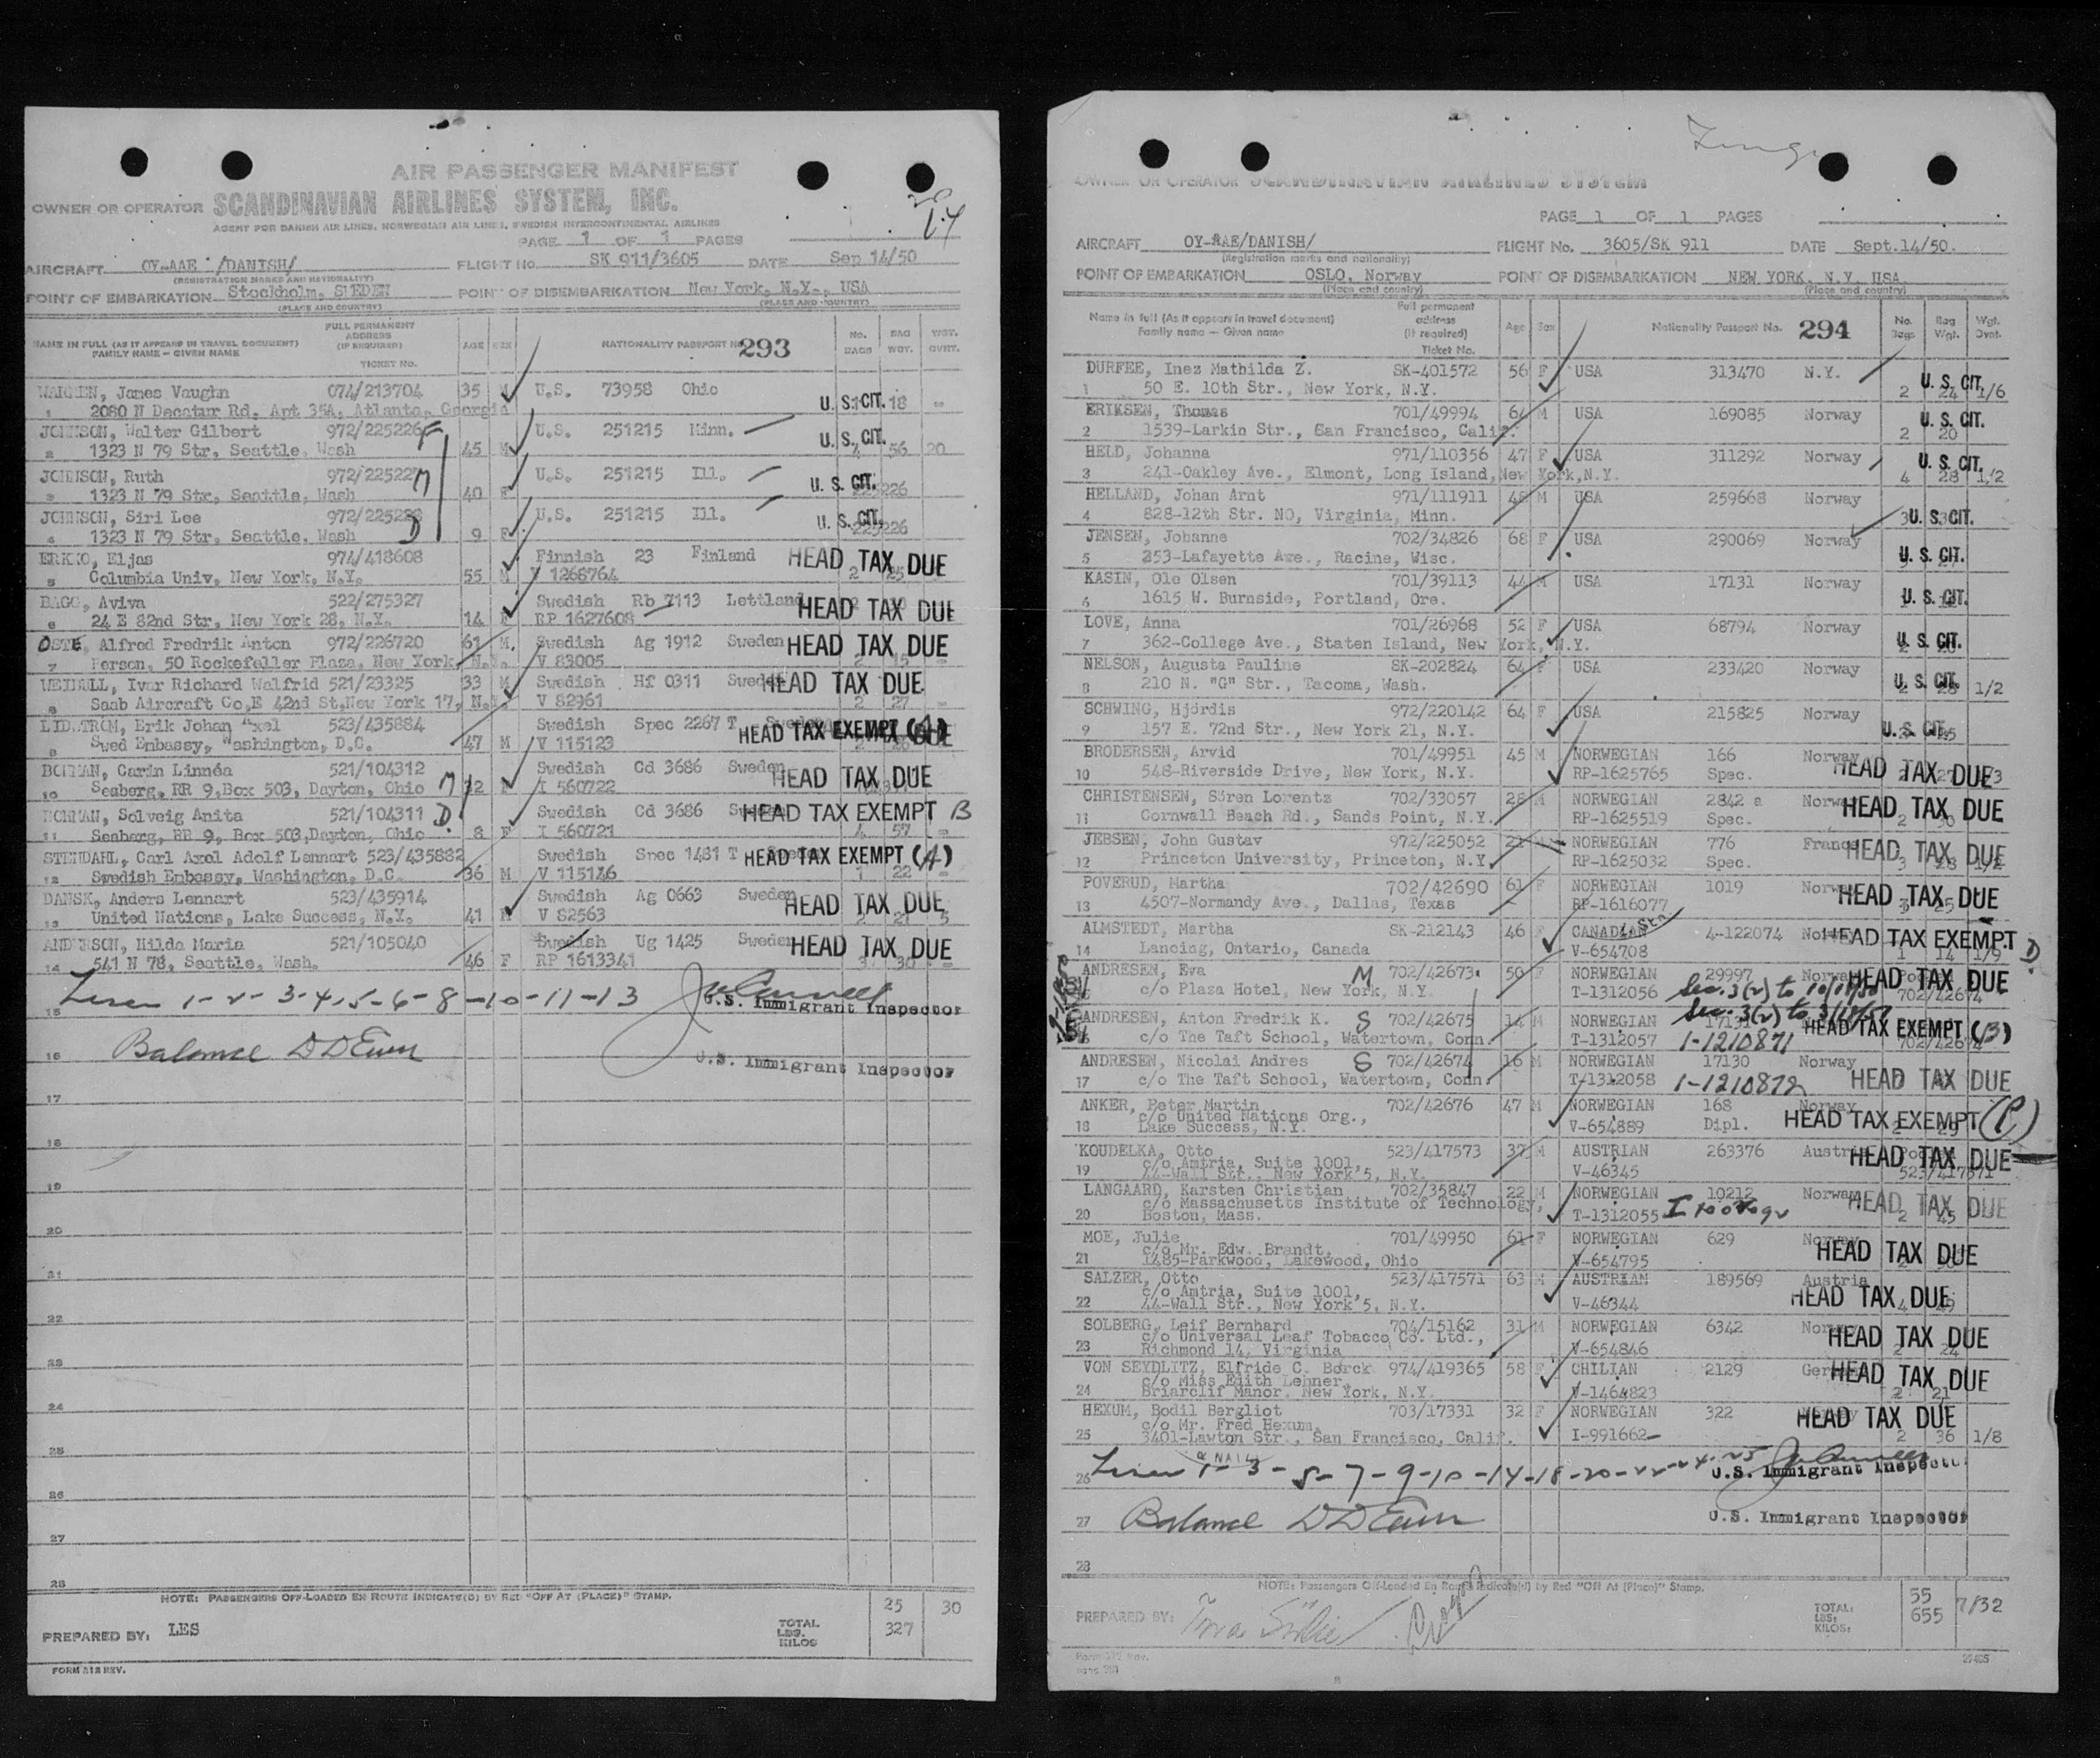 AIR PASSENGER MANIFEST
OWNER OR OPERATOR SCANDINAVIAN AIRLINES SYSTEM, INC.
AGENT FOR DANISH AIR LINES, NORWEGIAN AIR LINES, SWEDISH INTERCONTINENTAL AIRLINES
PAGE 1 OF 1 PAGES
AIRCRAFT OY-AAE /DANISH/ FLIGHT No. SK 911/3605 DATE Sep 14/50
(REGISTRATION MARKS AND NATIONALITY)
POINT OF EMBARKATION Stockholm, SWEDEN POINT OF DISEMBARKATION New York, N.Y., USA
(PLACE AND COUNTRY) (PLACE AND COUNTRY)
NAME IN FULL (AS IT APPEARS IN TRAVEL DOCUMENT) FAMILY NAME - GIVEN NAME FULL PERMANENT ADDRESS (IF REQUIRED) TICKET NO. AGE SEX NATIONALITY PASSPORT No. 293 No. BAGS BAG WGT. WGT. OVWT.
WARREN, James Vaughn 074/213704 35 M U.S. 73958 Ohio
1 2080 N Decatur Rd, Apt 35A, Atlanta, Georgia U.S. CIT. 18 -
JOHNSON, Walter Gilbert 972/225226 F U.S. 251215 Minn.
2 1323 N 79 Str, Seattle, Wash 45 M U. S. CIT. 56 20
JOHNSON, Ruth 972/225227 M U.S. 251215 Ill.
3 1323 N 79 Str, Seattle, Wash 40 F U. S. CIT.
JOHNSON, Siri Lee 972/225228 D U.S. 251215 Ill.
4 1323 N 79 Str, Seattle, Wash 9 F U. S. CIT.
ERKKO, Eljas 974/418608 Finnish 23 Finland HEAD TAX DUE
5 Columbia Univ, New York, N.Y. 55 M V 1268764 2 25
BAGO, Aviva 522/275327 Swedish Rb 7113 Lettland HEAD TAX DUE
6 24 E 82nd Str, New York 28, N.Y. 14 F RP 1627608
OSTE, Alfred Fredrik Anton 972/226720 61 M. Swedish Ag 1912 Sweden HEAD TAX DUE
7 Person, 50 Rockefeller Plaza, New York, N.Y. V 83005 2 15 -
WEIBULL, Ivar Richard Walfrid 521/23325 33 M Swedish Hf 0311 Sweden HEAD TAX DUE
8 Saab Aircraft Co,E 42nd St,New York 17, N.Y. V 82961 2 27 -
LIDSTROM, Erik Johan Axel 523/435884 Swedish Spec 2267 T Sweden HEAD TAX EXEMPT (A)
9 Swed Embassy, Washington, D.C. 47 M V 115123
BOHMAN, Carin Linnéa 521/104312 Swedish Cd 3686 Sweden HEAD TAX DUE
10 Seaberg, RR 9,Box 503, Dayton, Ohio M 32 F I 560722
BOHMAN, Solveig Anita 521/104311 D. Swedish Cd 3686 HEAD TAX EXEMPT B
11 Seaberg, RR 9, Box 503,Dayton, Ohio 8 F I 560721 4 57 -
STENDAHL, Carl Axel Adolf Lennart 523/435882 Swedish Spec 1481 T HEAD TAX EXEMPT (A)
12 Swedish Embassy, Washington, D.C. 36 M V 115126 1 22 -
DANSK, Anders Lennart 523/435914 Swedish Ag 0663 Sweden HEAD TAX DUE
13 United Nations, Lake Success, N.Y. 41 M V 82563 2 21 5
ANDERSON, Hilda Maria 521/105040 Swedish Ug 1425 Sweden HEAD TAX DUE
14 541 N 78, Seattle, Wash. 46 F RP 1613341 3 30 -
1-2-3-4-5-6-8-10-11-13
15 U.S. Immigrant Inspector
16 Balance U.S. Immigrant Inspector
17
18
19
20
21
22
23
24
25
26
27
28
NOTE: PASSENGERS OFF-LOADED EN ROUTE INDICATE(D) BY RED "OFF AT (PLACE)" STAMP.
PREPARED BY: LES TOTAL LBS. KILOS 25 327 30
FORM 212 REV.
OWNER OR OPERATOR SCANDINAVIAN AIRLINES SYSTEM
PAGE 1 OF 1 PAGES
AIRCRAFT OY-AAE/DANISH/ FLIGHT No. 3605/SK 911 DATE Sept.14/50.
(Registration marks and nationality)
POINT OF EMBARKATION OSLO, Norway POINT OF DISEMBARKATION NEW YORK, N.Y. USA
(Place and country) (Place and country)
Name in full (As it appears in travel document) Family name - Given name Full permanent address (if required) Ticket No. Age Sex Nationality Passport No. 294 No. Bags Bag Wgt. Wgt. Ovwt.
DURFEE, Inez Mathilda Z. SK-401572 56 F USA 313470 N.Y.
1 50 E. 10th Str., New York, N.Y. U. S. CIT. 2 24 1/6
ERIKSEN, Thomas 701/49994 64 M USA 169085 Norway
2 1539-Larkin Str., San Francisco, Calif. U. S. CIT. 2 20
HELD, Johanna 971/110356 47 F USA 311292 Norway
3 241-Oakley Ave., Elmont, Long Island,New York,N.Y. U. S. CIT. 4 28 1/2
HELLAND, Johan Arnt 971/111911 48 M USA 259668 Norway
4 828-12th Str. NO, Virginia, Minn. U. S. CIT.
JENSEN, Johanne 702/34826 68 F USA 290069 Norway
5 253-Lafayette Ave., Racine, Wisc. U. S. CIT.
KASIN, Ole Olsen 701/39113 44 M USA 17131 Norway
6 1615 W. Burnside, Portland, Ore. U. S. CIT.
LOVE, Anna 701/26968 52 F USA 68794 Norway
7 362-College Ave., Staten Island, New York, N.Y. U. S. CIT.
NELSON, Augusta Pauline SK-202824 64 F USA 233420 Norway
8 210 N. "G" Str., Tacoma, Wash. U. S. CIT. 1/2
SCHWING, Hjördis 972/220142 64 F USA 215825 Norway
9 157 E. 72nd Str., New York 21, N.Y. U. S. CIT.
BRODERSEN, Arvid 701/49951 45 M NORWEGIAN 166 Norway
10 548-Riverside Drive, New York, N.Y. RP-1625765 Spec. HEAD TAX DUE
CHRISTENSEN, Sören Lorentz 702/33057 28 M NORWEGIAN 2842 a Norway HEAD TAX DUE
11 Cornwall Beach Rd., Sands Point, N.Y. RP-1625519 Spec.
JEBSEN, John Gustav 972/225052 21 M NORWEGIAN 776 France HEAD TAX DUE
12 Princeton University, Princeton, N.Y. RP-1625032 Spec. 3 28 1/2
POVERUD, Martha 702/42690 61 F NORWEGIAN 1019 Norway HEAD TAX DUE
13 4507-Normandy Ave., Dallas, Texas RP-1616077 3 25
ALMSTEDT, Martha SK-212143 46 F CANADIAN 4-122074 HEAD TAX EXEMPT D
14 Lancing, Ontario, Canada V-654708 1 14 1/9
ANDRESEN, Eva M 702/42673 50 F NORWEGIAN 29997 Norway HEAD TAX DUE
c/o Plaza Hotel, New York, N.Y. T-1312056 Sec. 3(2) to 702/42674
ANDRESEN, Anton Fredrik K. S 702/42675 14 M NORWEGIAN Sec. 3(2) to HEAD TAX EXEMPT (B)
c/o The Taft School, Watertown, Conn. T-1312057 1-1210871 702/42674
ANDRESEN, Nicolai Andres S 702/42674 16 M NORWEGIAN 17130 Norway
17 c/o The Taft School, Watertown, Conn. T-1312058 1-1210872 HEAD TAX DUE
ANKER, Peter Martin 702/42676 47 M NORWEGIAN 168 Norway
c/o United Nations Org., HEAD TAX EXEMPT
18 Lake Success, N.Y. V-654889 Dipl.
KOUDELKA, Otto 523/417573 37 M AUSTRIAN 263376 Austria
c/o Amtria, Suite 1001, HEAD TAX DUE
19 44-Wall Str., New York 5, N.Y. V-46345 523/417571
LANGAARD, Karsten Christian 702/35847 22 M NORWEGIAN 10212 Norway
c/o Massachusetts Institute of Technology, HEAD TAX DUE
20 Boston, Mass. T-1312055 2 45
MOE, Julie 701/49950 61 F NORWEGIAN 629 Norway
c/o Mr. Edw. Brandt, HEAD TAX DUE
21 1485-Parkwood, Lakewood, Ohio V-654795
SALZER, Otto 523/417571 63 M AUSTRIAN 189569 Austria
c/o Amtria, Suite 1001, HEAD TAX DUE
22 44-Wall Str., New York 5, N.Y. V-46344
SOLBERG, Leif Bernhard 704/15162 31 M NORWEGIAN 6342 Norway
c/o Universal Leaf Tobacco Co. Ltd., HEAD TAX DUE
23 Richmond 14, Virginia V-654846 2 24
VON SEYDLITZ, Elfride C. Borck 974/419365 58 F CHILIAN 2129 Germany
c/o Miss Edith Lehner, HEAD TAX DUE
24 Briarclif Manor, New York, N.Y. V-1464823 2 21
HEXUM, Bodil Bergliot 703/17331 32 F NORWEGIAN 322
c/o Mr. Fred Hexum, HEAD TAX DUE
25 3401-Lawton Str., San Francisco, Calif. I-991662 2 36 1/8
26 1-3-5-7-9-10-14-18-20-22-24-25 U.S. Immigrant Inspector
27 Balance U.S. Immigrant Inspector
28
NOTE: Passengers Off-Loaded En Route Indicate(d) by Red "Off At (Place)" Stamp.
PREPARED BY: TOTAL: LBS: KILOS: 55 655 7/32
Form 212 Rev.
27405